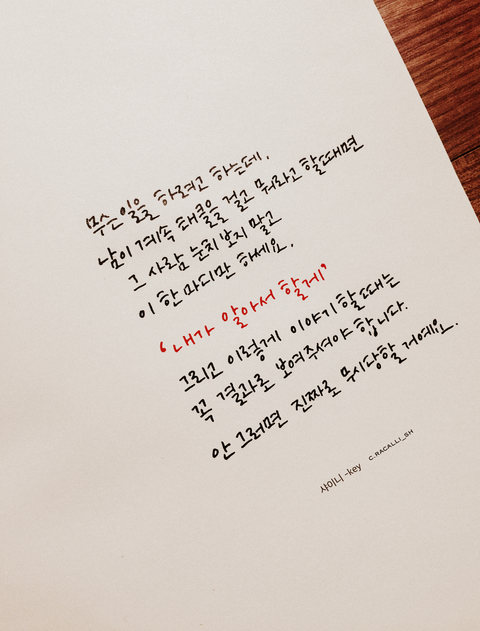 무슨일을 하려고 하는데,
남이 계속 태클을 걸고 뭐라고 할때면
그 사람 눈치 보지 말고
이 한마디만 하세요.
'내가 알아서 할게'
그리고 이렇게 이야기 할때는
꼭 결과로 보여주셔야 합니다.
안 그러면 진짜로 무시당할 거예요.
샤이니 -key C.RACALLI_SH